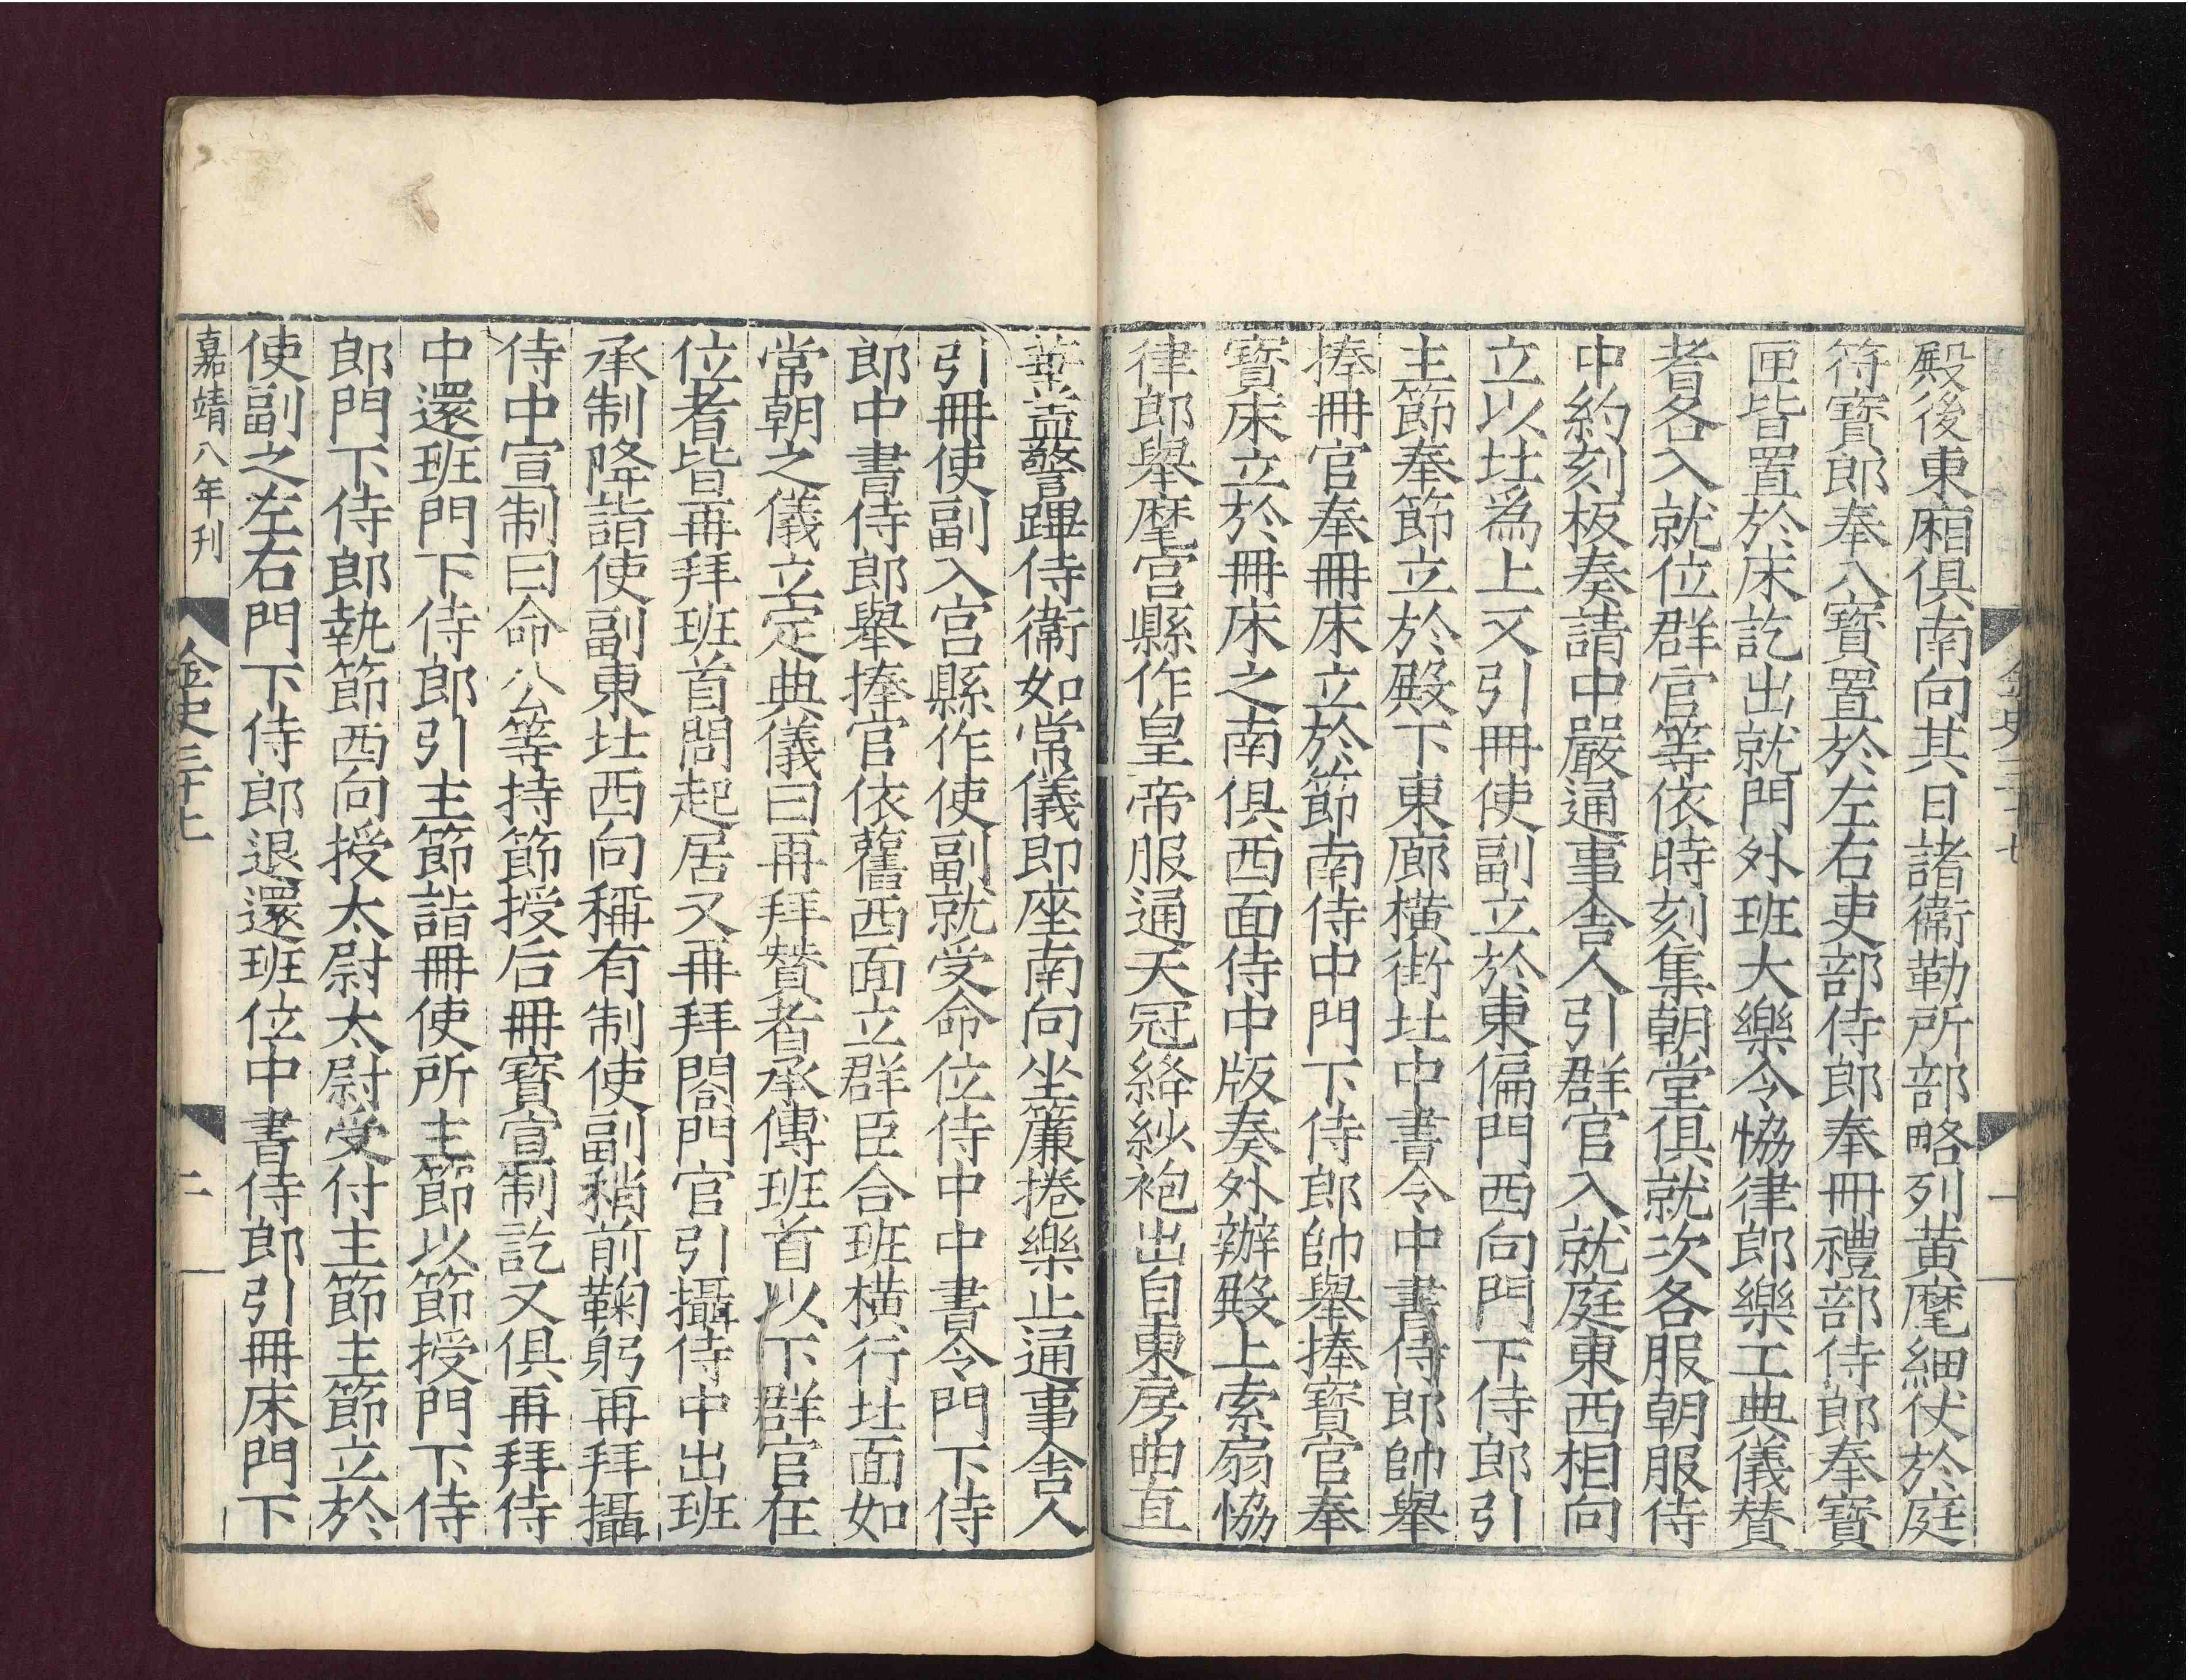 殿後東廂俱南向其日諸衛勒所部略列黃麾細仗於庭
符寳郎奉八寳置於左右吏部侍郎奉冊禮部侍郎奉寳
匣皆置於床訖出就門外班大樂令恊律郎樂工典儀賛
者各入就位群官等依時刻集朝堂俱就次各服朝服侍
中約刻板奏請中嚴通事舎人引群官入就庭東西相向
立以北爲上又引冊使副立於東偏門西向門下侍郎引
主節奉節立於殿下東廊橫街北中書令中書侍郎帥舉
捧冊官奉冊床立於節南侍中門下侍郎帥舉捧寳官奉
寳床立於冊床之南俱西面侍中版奏外辦殿上索扇恊
律郎舉麾宮縣作皇帝服通天冠絳紗袍出自東房曲直
華盖警蹕侍衛如常儀即座南向坐簾捲樂止通事舎人
引冊使副入宮縣作使副就受命位侍中中書令門下侍
郎中書侍郎舉捧官依舊西面立群臣合班橫行北面如
常朝之儀立定典儀曰再拜賛者承傳班首以下群官在
位者皆再拜班首問起居又再拜閤門官引攝侍中出班
承制降詣使副東北西向稱有制使副稍前鞠躬再拜攝
侍中宣制曰命公等持節授后冊寳宣制訖又俱再拜侍
中還班門下侍郎引主節詣冊使所主節以節授門下侍
郎門下侍郎執節西向授太尉太尉受付主節主節立於
使副之左右門下侍郎退還班位中書侍郎引冊床門下
嘉靖八年刊
金史三十七
二